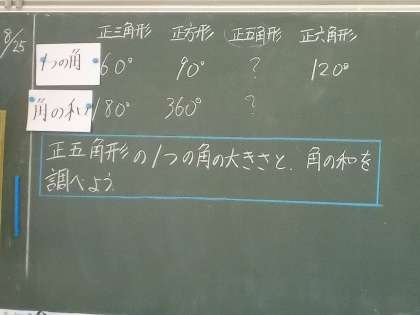 8/25
正三角形 正方形 正五角形 正六角形
1つの角 60° 90° ? 120°
角の和 180° 360° ?
正五角形の1つの角の大きさと、角の和を
調べよう。